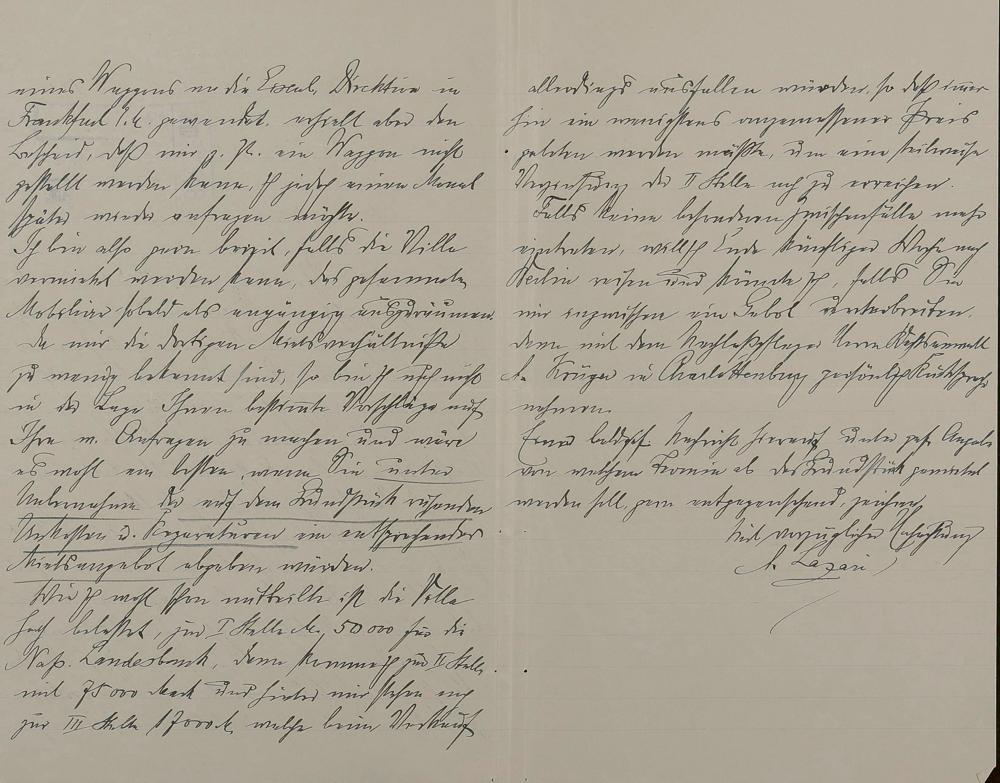 eines Waggons an die Eisenb. Direktion in
Frankfurt a. M. gewendet, erhielt aber den
Bescheid, daß mir z. Zt. ein Waggon nicht
gestellt werden kann, ich jedoch einen Monat
später wieder anfragen möchte.
Ich bin also gern bereit, falls die Villa
vermietet werden kann, das gesammte
Mobiliar sobald als angängig auszuräumen.
Da mir die dortigen Mietsverhältniße
zu wenig bekannt sind, so bin ich noch nicht
in der Lage Ihnen bestimmte Vorschläge auf
Ihre w. Anfragen zu machen und wäre
es wohl am besten, wenn Sie unter
Uebernahme der auf dem Grundstück ruhenden
Unkosten u. Reparaturen ein entsprechendes
Mietsangebot abgeben würden.
Wie ich wohl schon mitteilte ist die Villa
hoch belastet, zur I Stelle M. 50 000 für die
Naß. Landesbank, dann komme ich zur II Stelle
mit 75 000 Mark und hinter mir stehen noch
zur III Stelle 17000 M. welche beim Verkauf
allerdings ausfallen würden, so daß immer
hin ein wenigstens angemessener Preis
geboten werden müßte, um eine teilweise
der II Stelle noch zu erreichen.
Falls keine besonderen Zwischenfälle mehr
eintreten, will ich Ende künftiger Woche nach
Berlin reisen und könnte ich, falls Sie
mir inzwischen ein Gebot unterbreiten,
dann mit dem Nachlaßpfleger Herrn Rechtsanwalt
A. Krüger in Charlottenburg persönlich Rücksprache
nehmen.
Ihrer baldgef. Nachricht hierauf, unter gefl. Angabe
von welchem Termin ab das Grundstück gemietet
werden soll, gern entgegensehend, zeichne
Mit vorzüglicher Hochachtung
A. Lazari